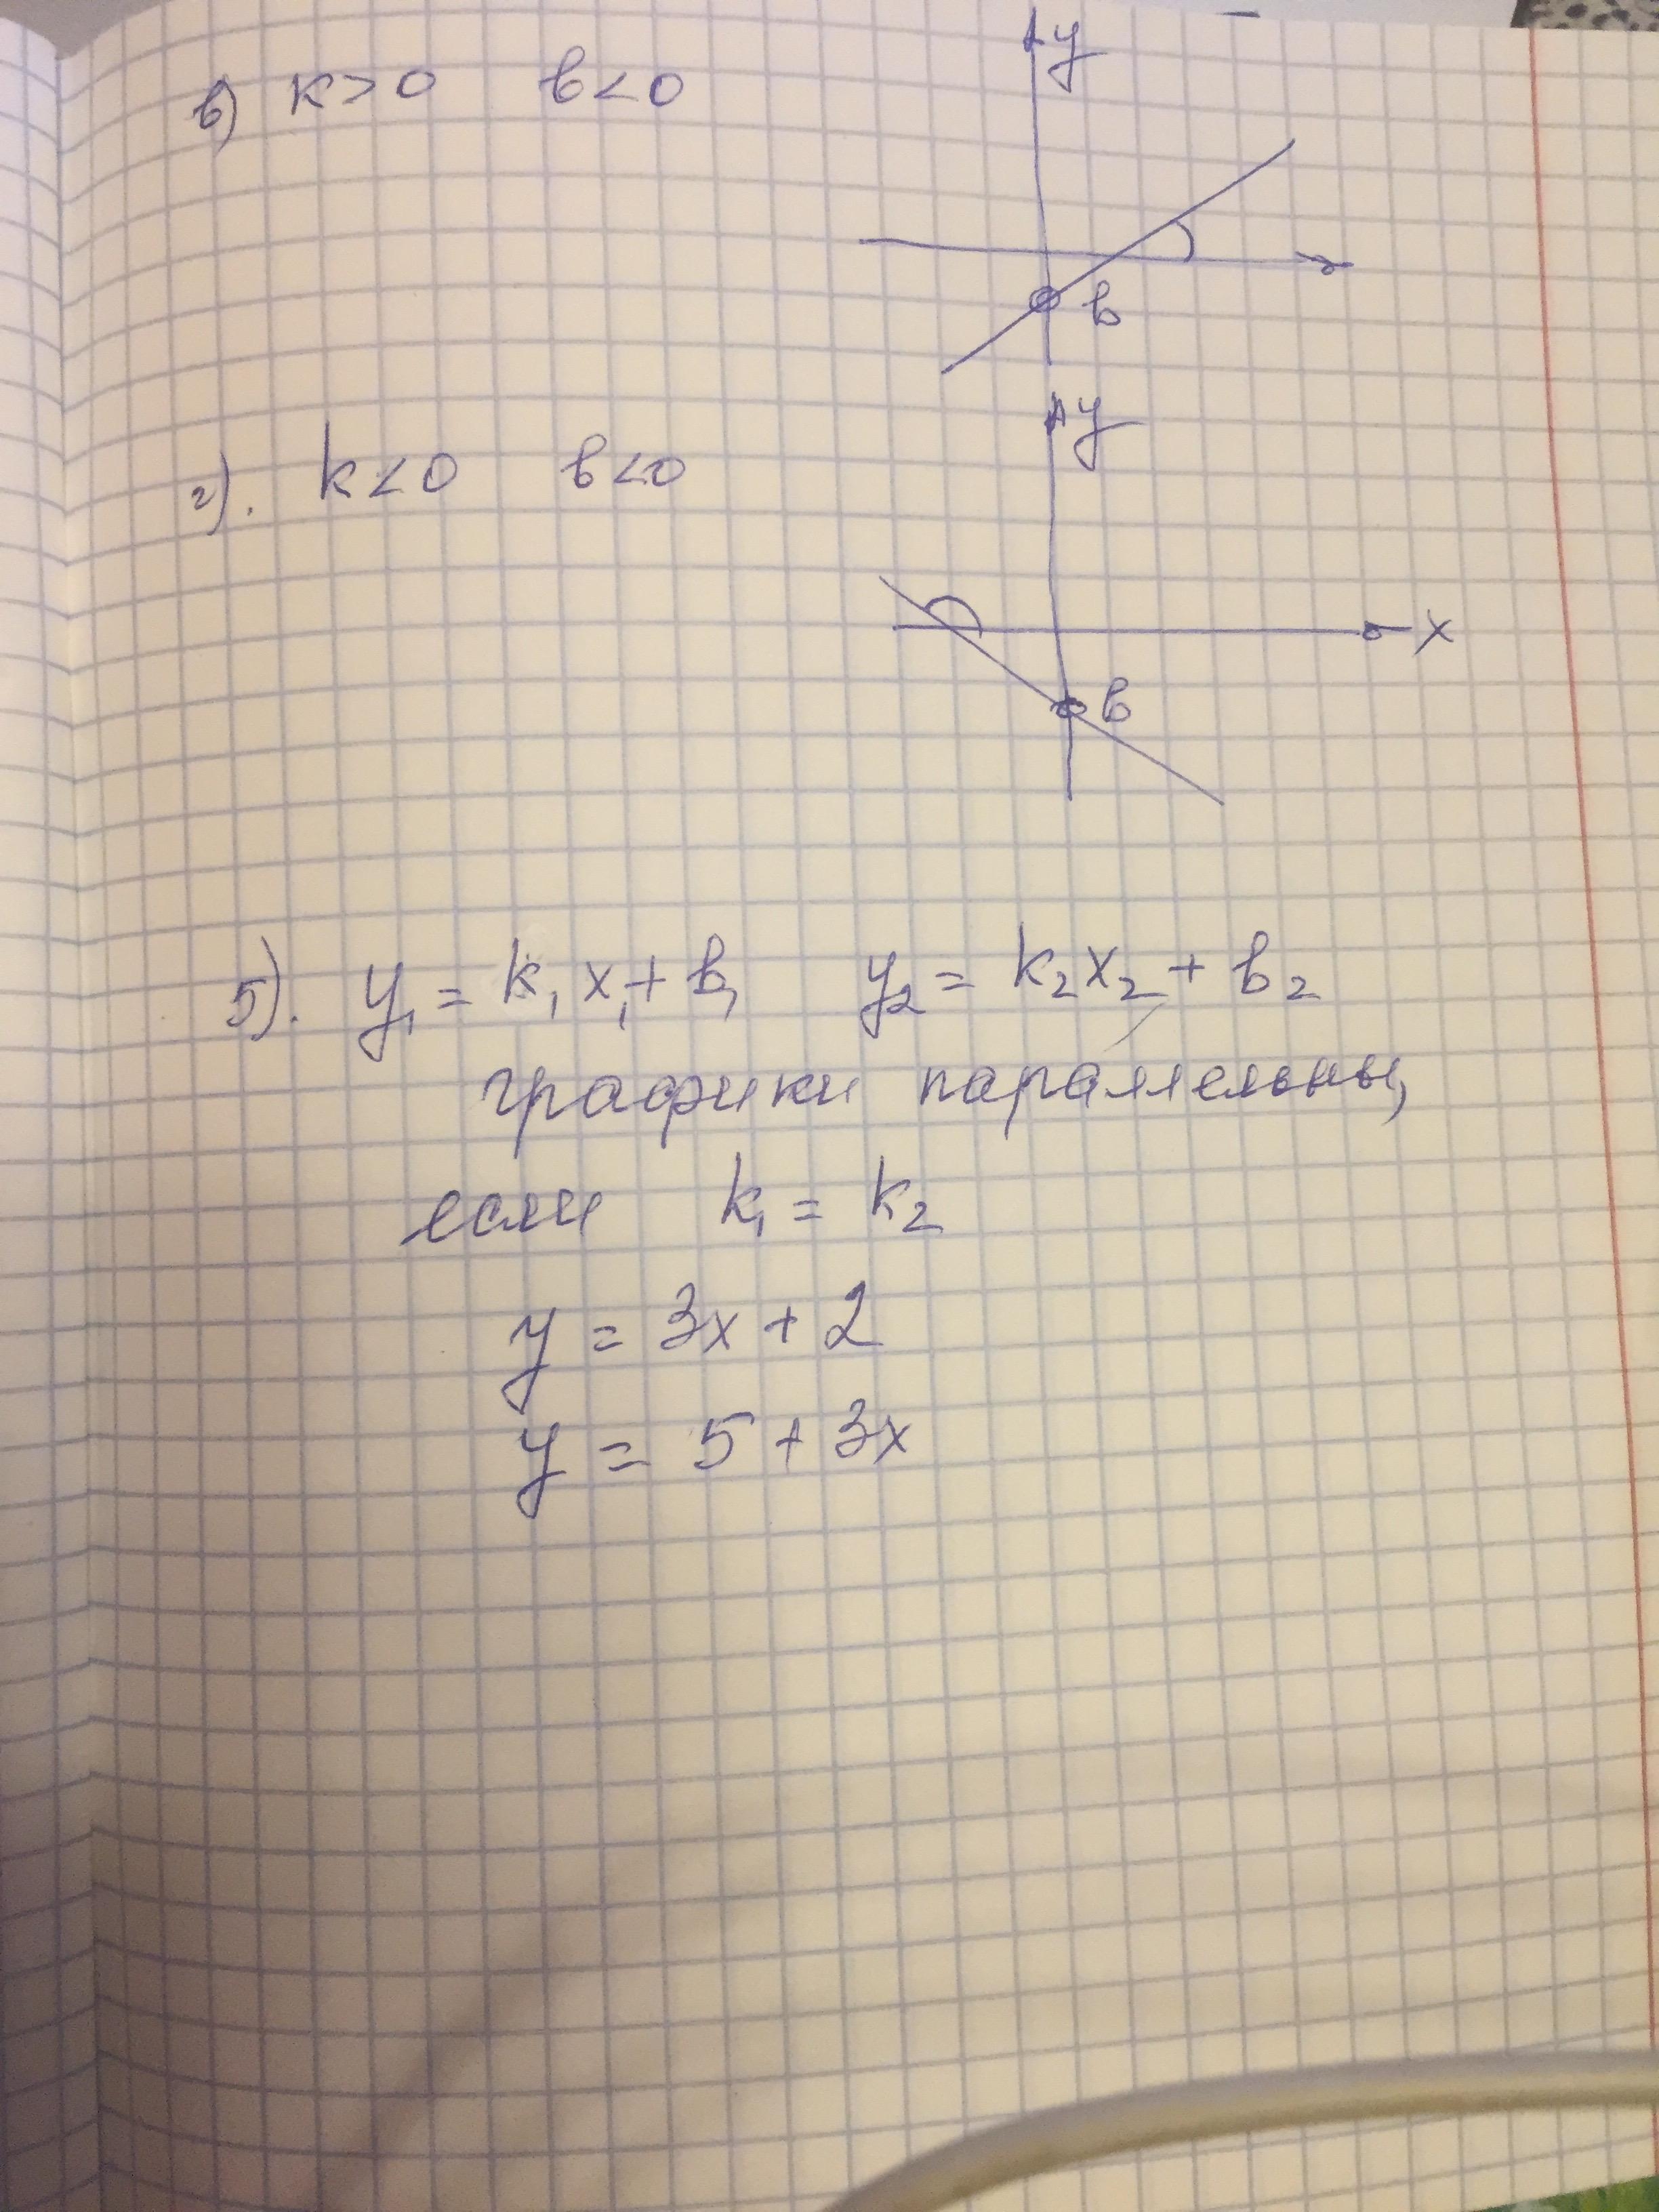 y
в) k>0 b<0
b
y
г). k<0 b<0
x
b
5). y₁ = k₁x₁ + b₁ y₂ = k₂x₂ + b₂
графики параллельны,
если k₁ = k₂
y = 3x + 2
y = 5 + 3x